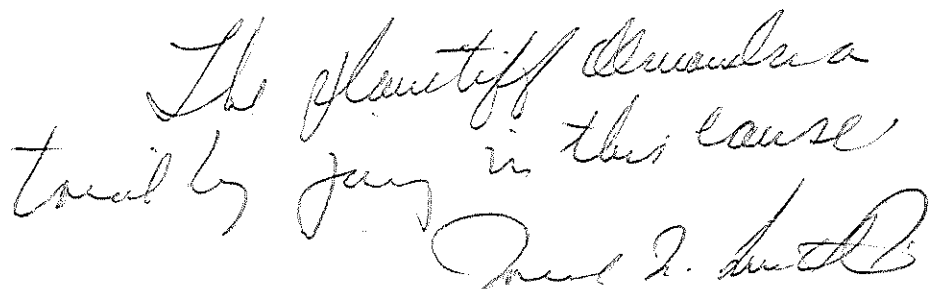 The plaintiff demands a
trial by jury in this cause